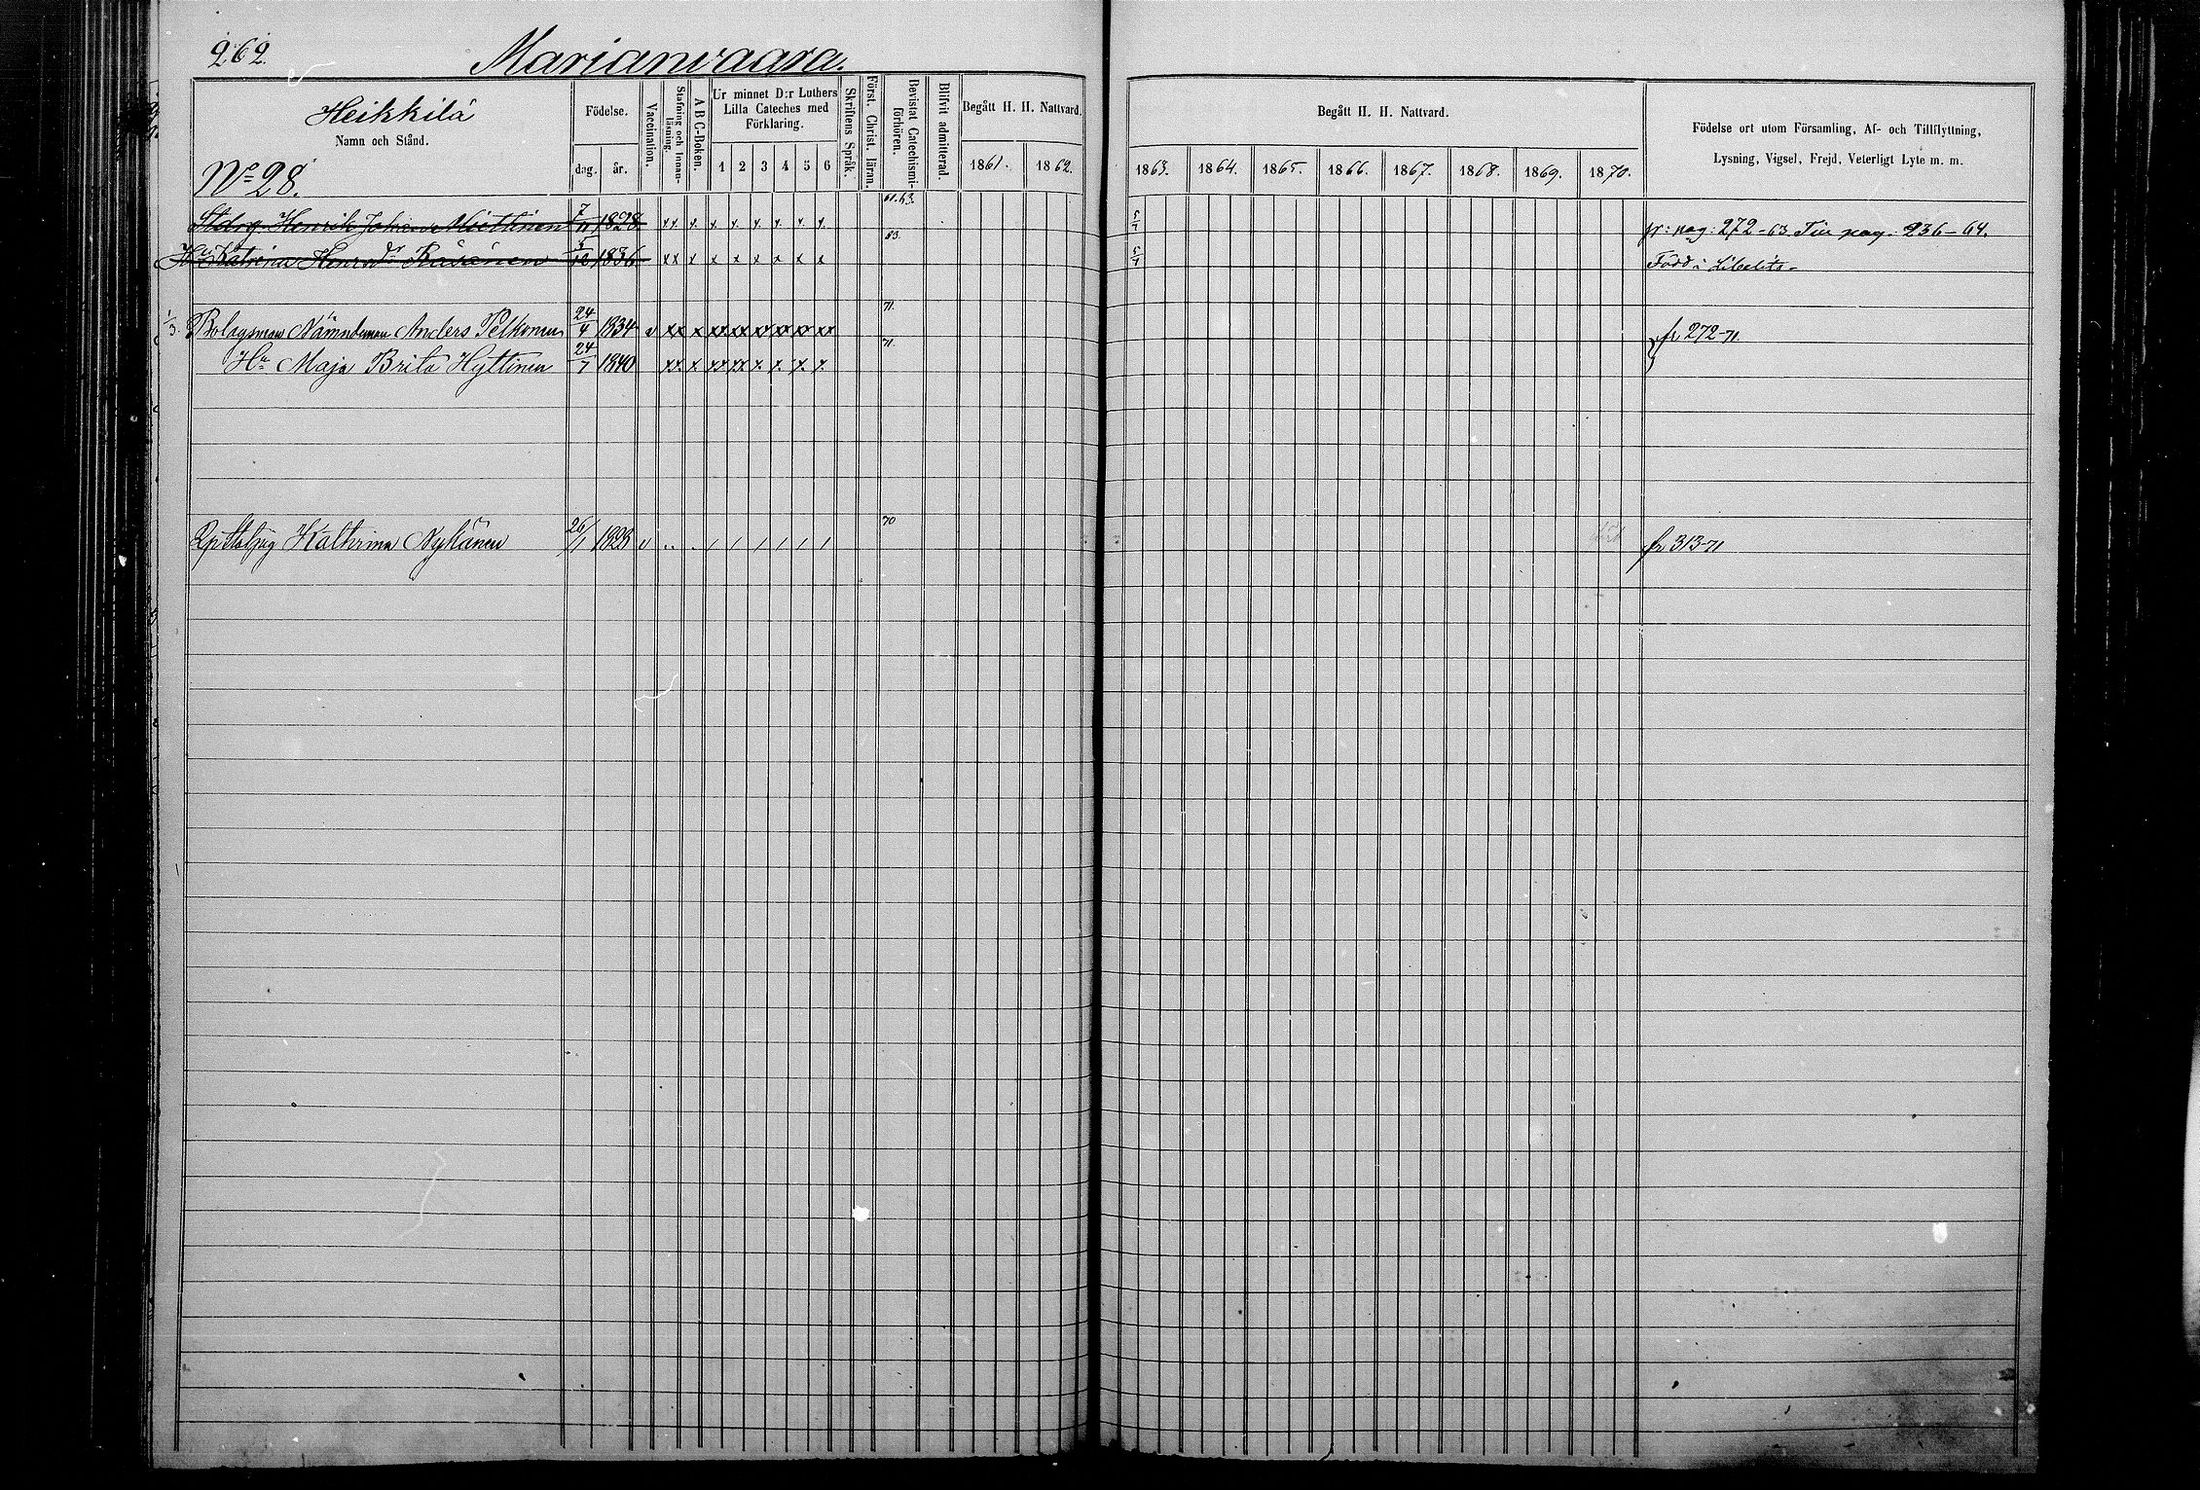 262. Marianvaara.
Heikkilä
Namn och Stånd.
No 28.
Födelse.
dag. år.
Vaccination.
Stafning och Innanläsning.
A B C-Boken.
Ur minnet D:r Luthers
Lilla Cateches med
Förklaring.
1 2 3 4 5 6
Skriftens Språk.
Först. Christ. läran.
Bevistat Catechismi-förhören.
Blifvit admitterad.
Begått H. H. Nattvard.
1861. 1862.
Begått H. H. Nattvard.
1863. 1864. 1865. 1866. 1867. 1868. 1869. 1870.
Födelse ort utom Församling, Af- och Tillflyttning,
Lysning, Vigsel, Frejd, Veterligt Lyte m. m.
Henrik Johan Miettinen 7/11 1828 x x x x x x x x x 61.63. 5/7 fr: pag: 272-63. Till pag. 236-64.
Hu Katrina Henrdr Räsänen 1836 x x x x x x x x x 63 5/7 Född i Libelits
1/3. Bolagsman Nämndeman Anders Pelkonen 24/4 1834 v xx x xx xx xx xx xx xx 71. fr 272-71
Hu Maja Brita Hyttinen 24/7 1840 xx x xx xx x x x x 71.
Kathrina Nykänen 26/1 1823 v .. . / / / / / / 70 fr 313-71